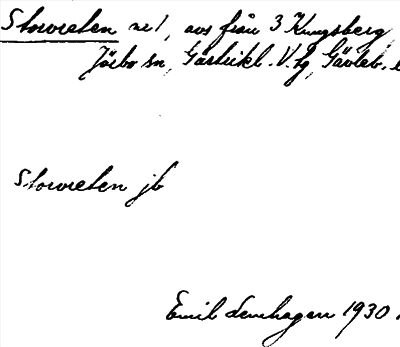 Storvreten nr 1, avs från 3 Kungsberg
Järbo sn, Gästrikl. V. tg, Gävleb. l
Storvreten jb
Emil Lennhagen 1930